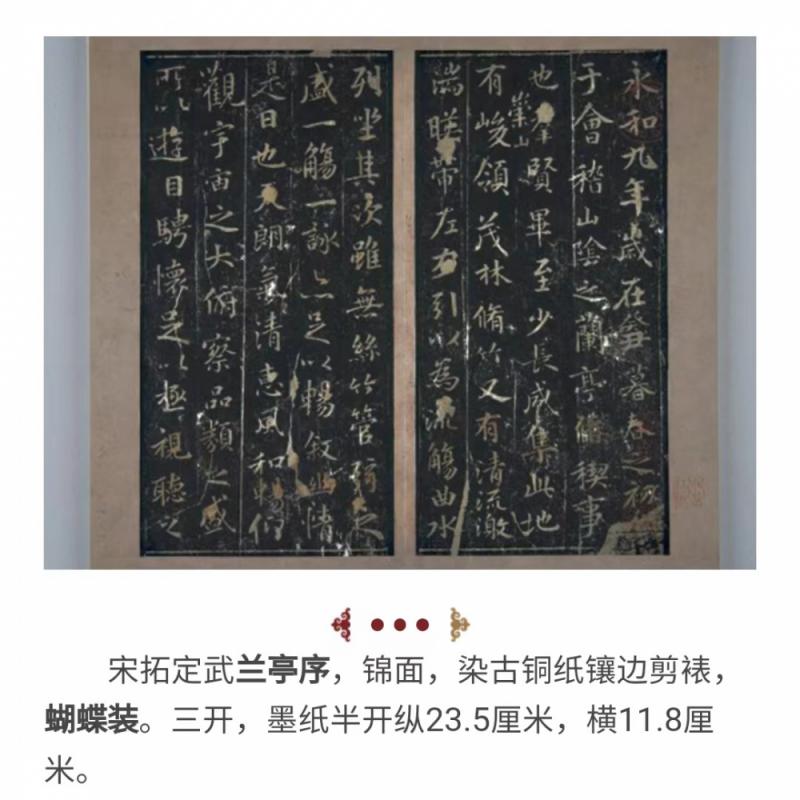 永和九年歲在癸丑暮春之初
于會稽山陰之蘭亭脩禊事
也羣賢畢至少長咸集此地
崇山
有峻領茂林脩竹又有清流激
湍暎帶左右引以為流觴曲水
列坐其次雖無絲竹管弦之
盛一觴一詠亦足以暢敘幽情
是日也天朗氣清惠風和暢仰
觀宇宙之大俯察品類之盛
所以遊目騁懷足以極視聽之
宋拓定武兰亭序，锦面，染古铜纸镶边剪裱，
蝴蝶装。三开，墨纸半开纵23.5厘米，横11.8厘
米。